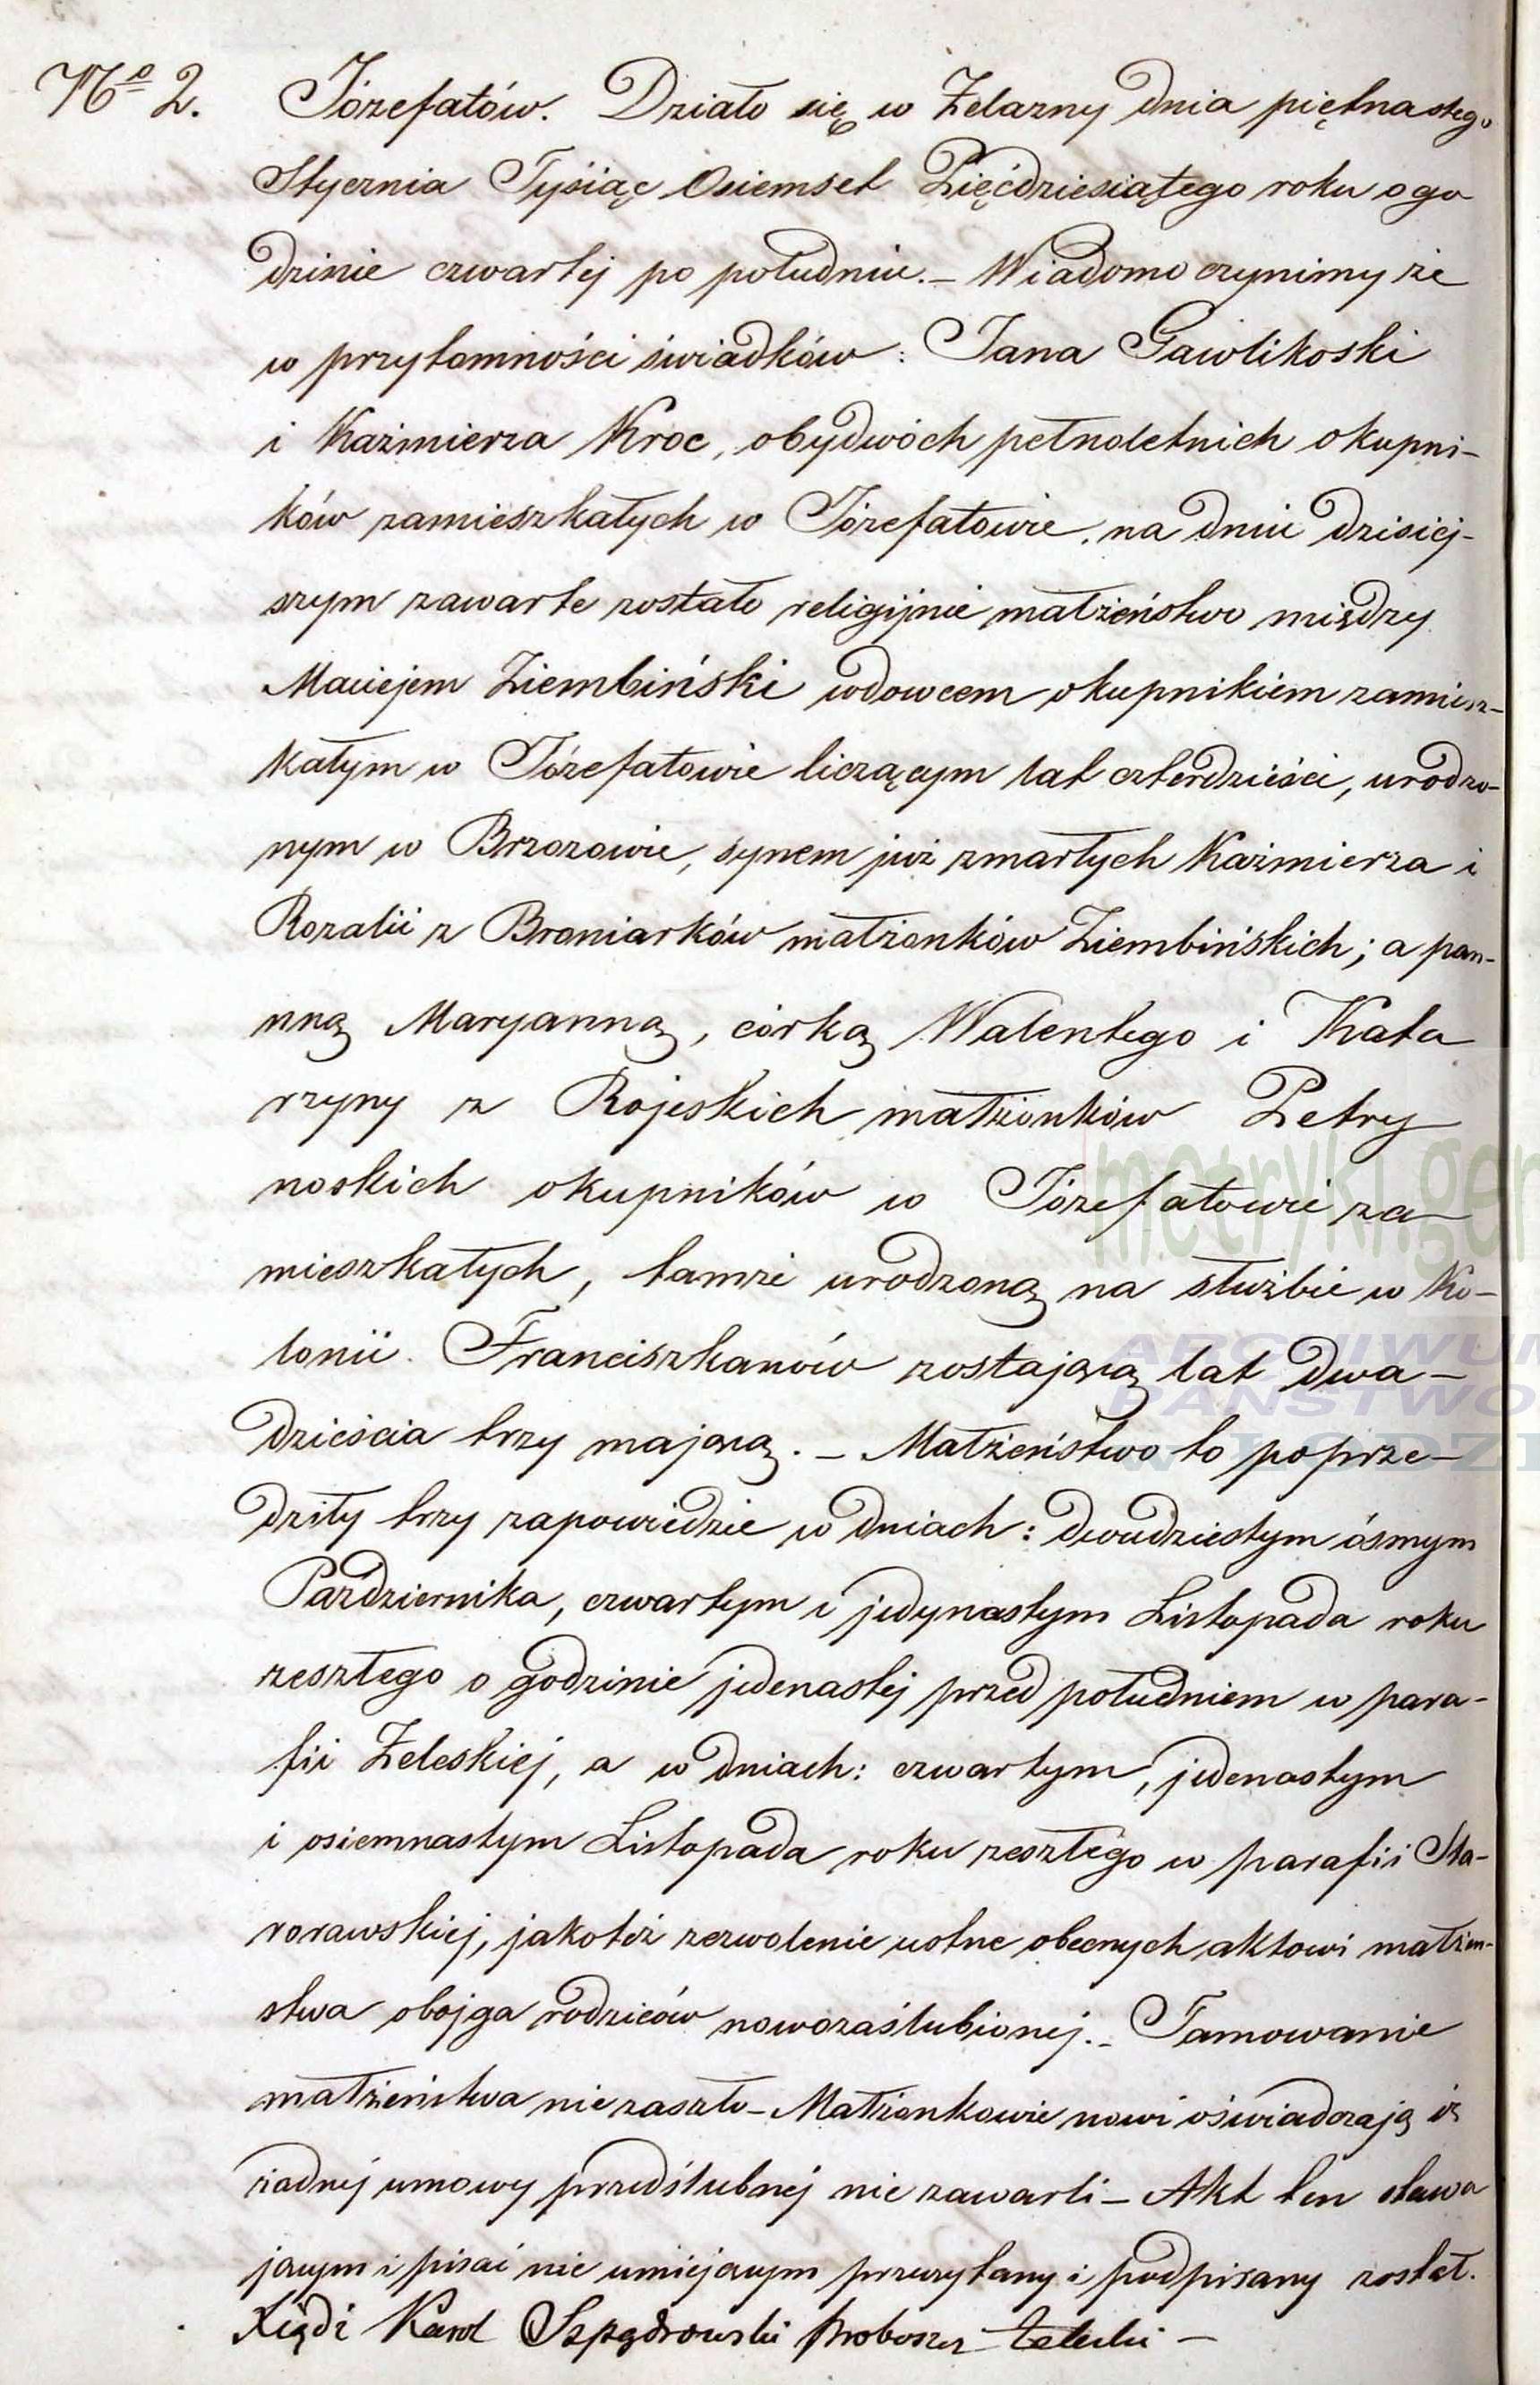 No 2. Józefatów. Działo się w Żelazny dnia piętnastego
Stycznia Tysiąc Osiemset Pięćdziesiątego roku o go
dzinie czwartej po południu. – Wiadomo czynimy że
w przytomności świadków: Jana Gawlikoski
i Kaźmierza Kroc, obydwóch pełnoletnich okupni-
ków zamieszkałych w Józefatowie, na dniu dzisiej-
szym zawarte zostało religijnie małżeństwo między
Maciejem Ziembiński wdowcem okupnikiem zamiesz-
kałym w Józefatowie liczącym lat czterdzieści, urodzo-
nym w Brzozowie, synem już zmarłych Kaźmierza i
Rozalii z Broniarków małżonków Ziembińskich; a pan-
nną Maryanną, córką Walentego i Kata
rzyny z Rojeskich małżonków Petry
noskich okupników w Józefatowie za-
mieszkałych, tamże urodzoną na służbie w Ko-
lonii Franciszkanów zostającą lat dwa-
dzieścia trzy mającą. – Małżeństwo to poprze-
dziły trzy zapowiedzie w dniach: dwudziestym ósmym
Października, czwartym i jedynastym Listopada roku
zeszłego o godzinie jedenastej przed południem w para-
fii Żeleskiej, a w dniach: czwartym, jedenastym
i osiemnastym Listopada roku zeszłego w parafii Sta-
rorawskiej, jakoteż zezwolenie ustne obecnych aktowi małżeń-
stwa obojga rodziców nowozaślubionej. – Tamowanie
małżeństwa nie zaszło – Małżonkowie nowi oświadczają iż
żadnej umowy przedślubnej nie zawarli – Akt ten stawa
jącym i pisać nie umiejącym przeczytany i podpisany został.
Xiądz Karol Szpądrowski Proboszcz Żeleski –
metryki.gen
ARCHIWUM
PAŃSTWO
W ŁODZI